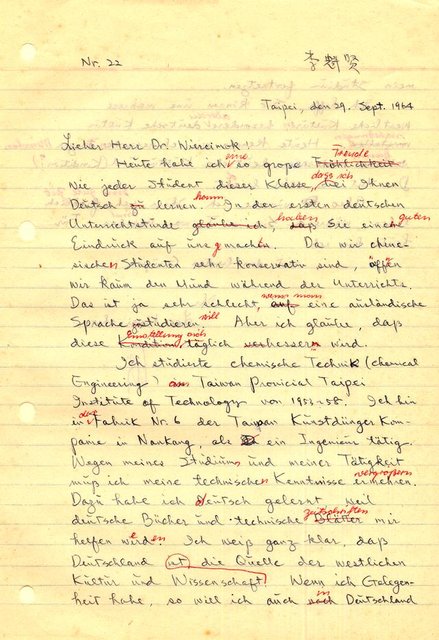 Nr. 22 李魁賢
Taipei, den 29. Sept. 1964
Lieber Herr Dr.
Heute habe ich so große Fröhlichkeit Freude
wie
wie jeder Student dieser Klasse, bei Ihnen
dass ich
Deutsch zu lernen. In der ersten deutschen
kann
Unterrichtstunde glaube ich, daß Sie einen guten
haben
Eindruck auf uns gemacht. Da wir chine-
sischen Studenten sehr konservativ sind, öffnen
wir kaum den Mund während der Unterrichts.
Das ist ja sehr schlecht, auf eine ausländische
wenn man
Sprache studieren. Aber ich glaube, daß
will
diese Kondition täglich verbessern wird.
Einstellung sich
Ich studierte chemische Technik (chemical
Engineering) an Taiwan Provicial Taipei
Institute of Technology von 1953-58. Ich bin
in Fabrik Nr. 6 der Taiwan Kunstdünger Kom-
der
panie in Nankang, als ein Ingenieur tätig.
Wegen meines Studiums und meiner Tätigkeit
muß ich meine technischen Kenntnisse ermehren.
vergrößern
Dazu habe ich deutsch gelernt, weil
deutsche Bücher und technische Blätter mir
Zeitschriften
helfen werden. Ich weiß ganz klar, daß
Deutschland ist die Quelle der westlichen
Kultur und Wissenschaft. Wenn ich Gelegen-
heit habe, so will ich auch nach Deutschland
in